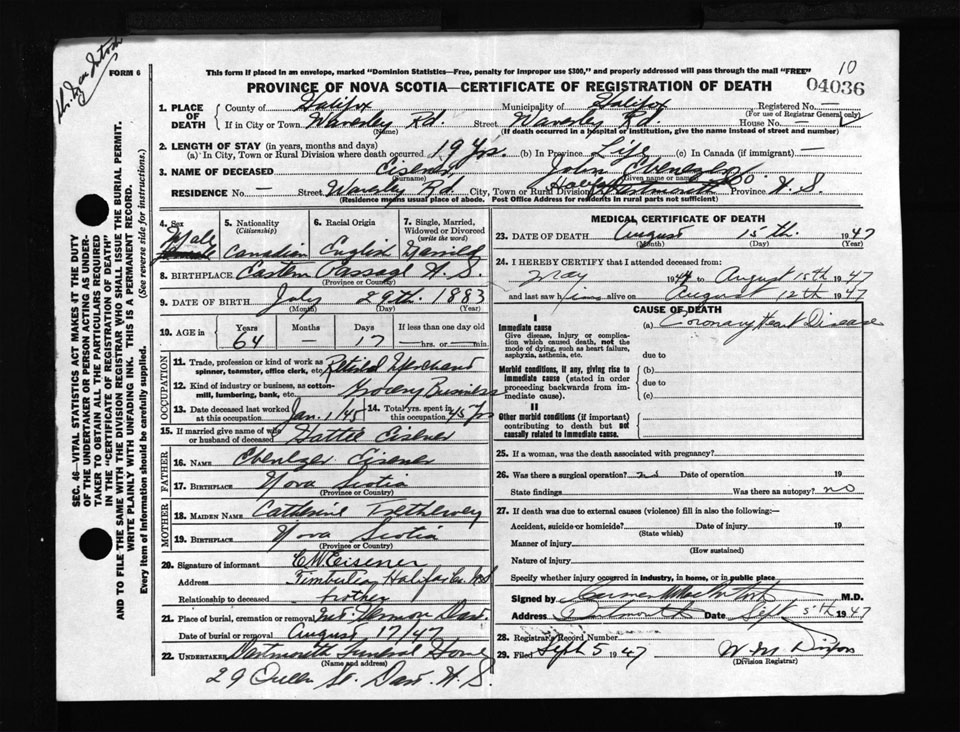 FORM 6
This form if placed in an envelope, marked "Dominion Statistics—Free, penalty for improper use $300," and properly addressed will pass through the mail "FREE"
10
PROVINCE OF NOVA SCOTIA—CERTIFICATE OF REGISTRATION OF DEATH
04036
1. PLACE OF DEATH
County of Halifax Municipality of Halifax Registered No. —
(For use of Registrar General only)
If in City or Town Waverley Rd. Street Waverley Rd. House No. —
(Name) (If death occurred in a hospital or institution, give the name instead of street and number)
2. LENGTH OF STAY (in years, months and days)
(a) In City, Town or Rural Division where death occurred 19 Yrs. (b) In Province Life (c) In Canada (if immigrant) —
3. NAME OF DECEASED Eisener, John Ebenezer
(Surname) (Given name or names)
RESIDENCE No. — Street Waverley Rd City, Town or Rural Division Halifax Co. Dartmouth Province N. S.
(Residence means usual place of abode. Post Office Address for residents in rural parts not sufficient)
4. Sex Male Female
5. Nationality (Citizenship) Canadian
6. Racial Origin English
7. Single, Married, Widowed or Divorced (write the word) Married
8. BIRTHPLACE Eastern Passage N. S.
(Province or Country)
9. DATE OF BIRTH July 29th. 1883
(Month) (Day) (Year)
10. AGE in Years Months Days If less than one day old
64 — 17 —hrs. or —min.
OCCUPATION
11. Trade, profession or kind of work as spinner, teamster, office clerk, etc. Retired Merchant
12. Kind of industry or business, as cotton-mill, lumbering, bank, etc. Grocery Business
13. Date deceased last worked at this occupation Jan. 1/45 14. Total yrs. spent in this occupation 45 Yrs
15. If married give name of wife or husband of deceased Hattie Eisener
FATHER
16. NAME Ebenezer Eisener
17. BIRTHPLACE Nova Scotia
(Province or Country)
MOTHER
18. MAIDEN NAME Catherine Trethewey
19. BIRTHPLACE Nova Scotia
(Province or Country)
20. Signature of informant C W Eisener
Address Timberlea Halifax Co. N.S
Relationship to deceased brother
21. Place of burial, cremation or removal Mt. Hermon Dart.
Date of burial or removal August 17/47
22. UNDERTAKER Dartmouth Funeral Home
(Name and address)
29 Queen St. Dart. N. S.
MEDICAL CERTIFICATE OF DEATH
23. DATE OF DEATH August 15th. 1947
(Month) (Day) (Year)
24. I HEREBY CERTIFY that I attended deceased from:
May 1947 to August 15th 1947
and last saw him alive on August 12th 1947
CAUSE OF DEATH
I
Immediate cause (a) Coronary Heart Disease
Give disease, injury or complication which caused death, not the mode of dying, such as heart failure, asphyxia, asthenia, etc.
due to
Morbid conditions, if any, giving rise to immediate cause (stated in order proceeding backwards from immediate cause).
(b)
due to
(c)
II
Other morbid conditions (if important) contributing to death but not causally related to immediate cause.
25. If a woman, was the death associated with pregnancy?
26. Was there a surgical operation? no Date of operation 19
State findings Was there an autopsy? no
27. If death was due to external causes (violence) fill in also the following:—
Accident, suicide or homicide? Date of injury 19
(State which)
Manner of injury
(How sustained)
Nature of injury
Specify whether injury occurred in industry, in home, or in public place
Signed by M.D.
Address Dartmouth Date Sept 5th 1947
28. Registrar's Record Number
29. Filed Sept 5 1947 W. M. Dixon
(Division Registrar)
SEC. 46—VITAL STATISTICS ACT MAKES IT THE DUTY
OF THE UNDERTAKER OR PERSON ACTING AS UNDERTAKER TO OBTAIN ALL THE PARTICULARS REQUIRED
IN THE "CERTIFICATE OF REGISTRATION OF DEATH"
AND TO FILE THE SAME WITH THE DIVISION REGISTRAR WHO SHALL ISSUE THE BURIAL PERMIT.
WRITE PLAINLY WITH UNFADING INK. THIS IS A PERMANENT RECORD.
Every item of Information should be carefully supplied. (See reverse side for instructions.)